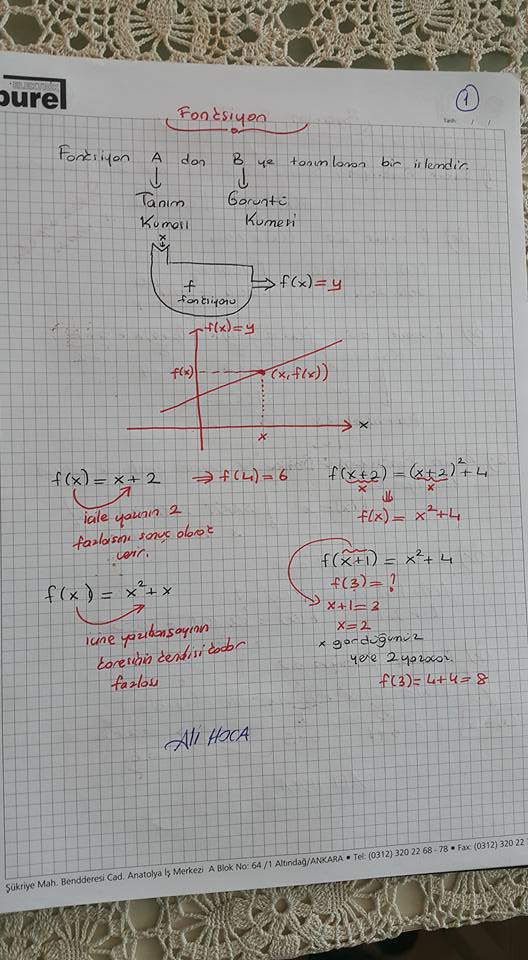 ELEKTRİK
purel
1
Tarih: / /
Fonksiyon
Fonksiyon A dan B ye tanımlanan bir işlemdir.
Tanım Kümesi
Görüntü Kümesi
x
f fonksiyonu
f(x) = y
f(x) = y
f(x)
(x, f(x))
x
x
f(x) = x + 2 ⇒ f(4) = 6
içine yazının 2
fazlasını sonuç olarak
verir.
f(x) = x² + x
içine yazılan sayının
karesinin kendisi kadar
fazlası
f(x+2) = (x+2)² + 4
x x
⇓
f(x) = x² + 4
f(x+1) = x² + 4
f(3) = ?
x+1 = 3
x = 2
x gördüğümüz
yere 2 yazacaz.
f(3) = 4+4 = 8
Ali HOCA
Şükriye Mah. Bendderesi Cad. Anatolya İş Merkezi A Blok No: 64 /1 Altındağ/ANKARA • Tel: (0312) 320 22 68 - 78 • Fax: (0312) 320 22